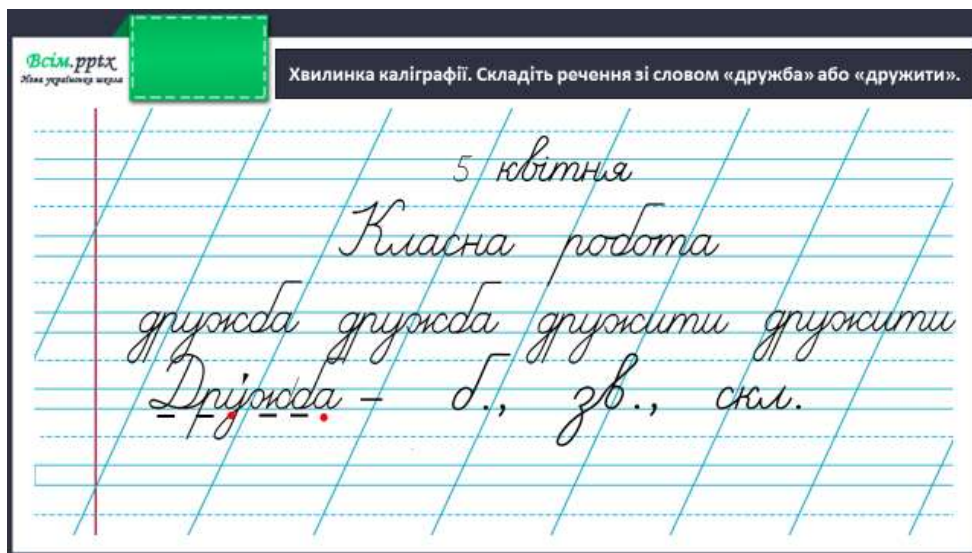 Всім.pptx
Нова українська школа
Хвилинка каліграфії. Складіть речення зі словом «дружба» або «дружити».
5 квітня
Класна робота
дружба дружба дружити дружити
Дру́жба – б., зв., скл.